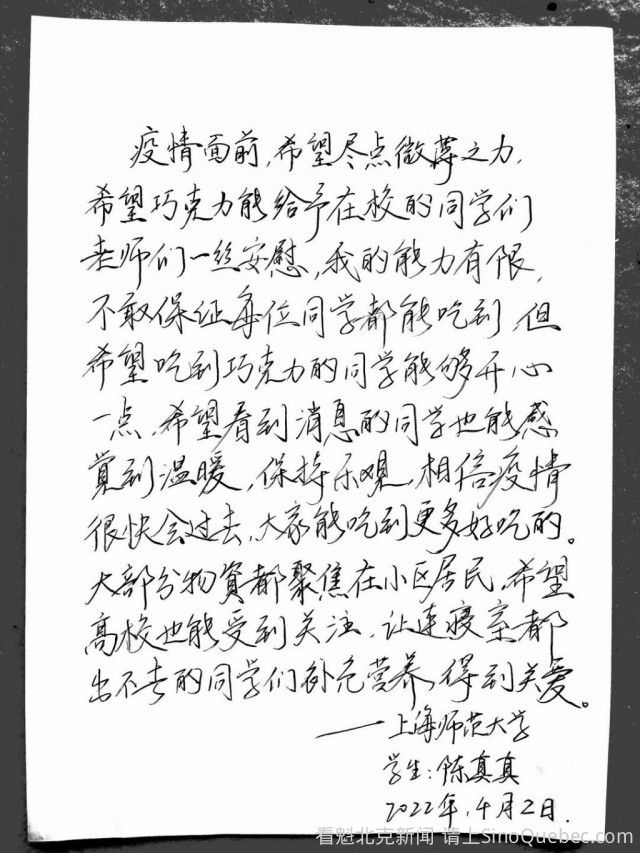 疫情面前,希望尽点微薄之力,
希望巧克力能给予在校的同学们
老师们一丝安慰,我的能力有限,
不敢保证每位同学都能吃到,但
希望吃到巧克力的同学能够开心
一点,希望看到消息的同学也能感
觉到温暖,保持乐观,相信疫情
很快会过去,大家能吃到更多好吃的。
大部分物资都聚焦在小区居民,希望
高校也能受到关注,让连寝室都
出不去的同学们补充营养,得到关爱。
——上海师范大学
学生:陈真真
2022年,4月2日.
看魁北克新闻 请上SinoQuebec.com